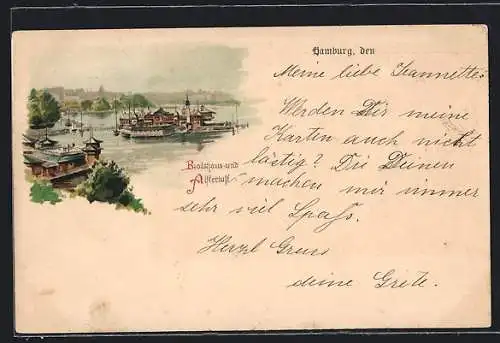 Hamburg, den
Meine liebe Jeannette!
Werden Dir meine
Karten auch nicht
lästig? Die Deinen
machen mir immer
sehr viel Spaß.
Herzl Gruss
deine Grete.
Bootshaus und
Alsterlust